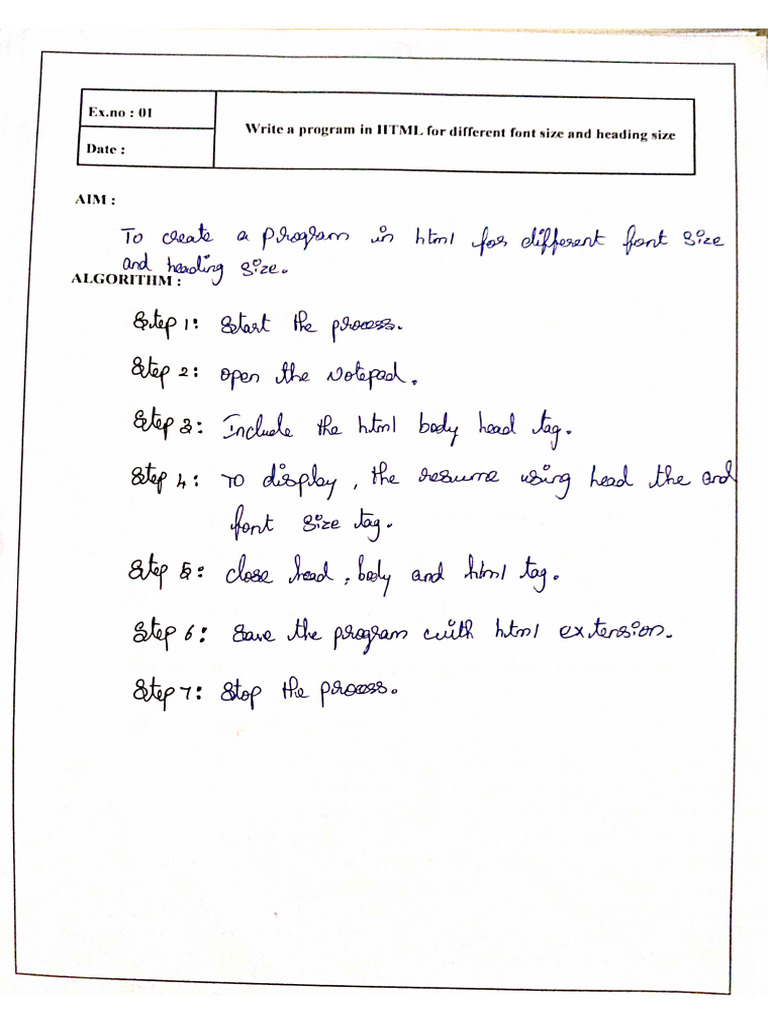 Ex.no : 01
Write a program in HTML for different font size and heading size
Date :
AIM :
To create a program in html for different font size
and heading size.
ALGORITHM :
Step 1: Start the process.
Step 2: open the Notepad.
Step 3: Include the html body head tag.
Step 4: To display, the resume using head the and
font size tag.
Step 5: close head, body and html tag.
Step 6: Save the program with html extension.
Step 7: Stop the process.